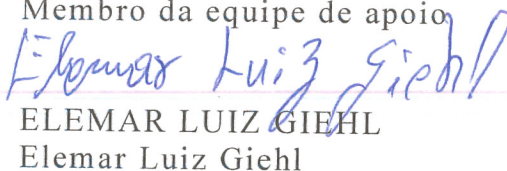 Membro da equipe de apoio
Elemar Luiz Giehl
ELEMAR LUIZ GIEHL
Elemar Luiz Giehl